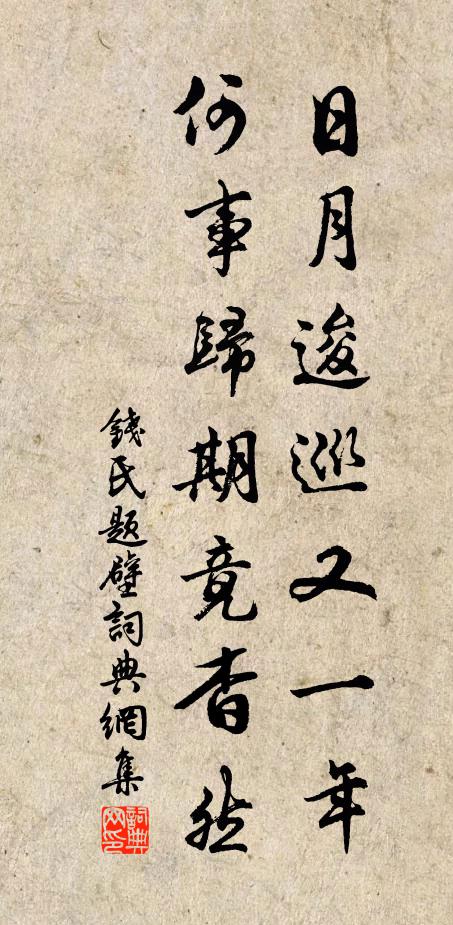 日月逡巡又一年
何事歸期竟杳然
錢氏題壁詞典網集
詞典網印